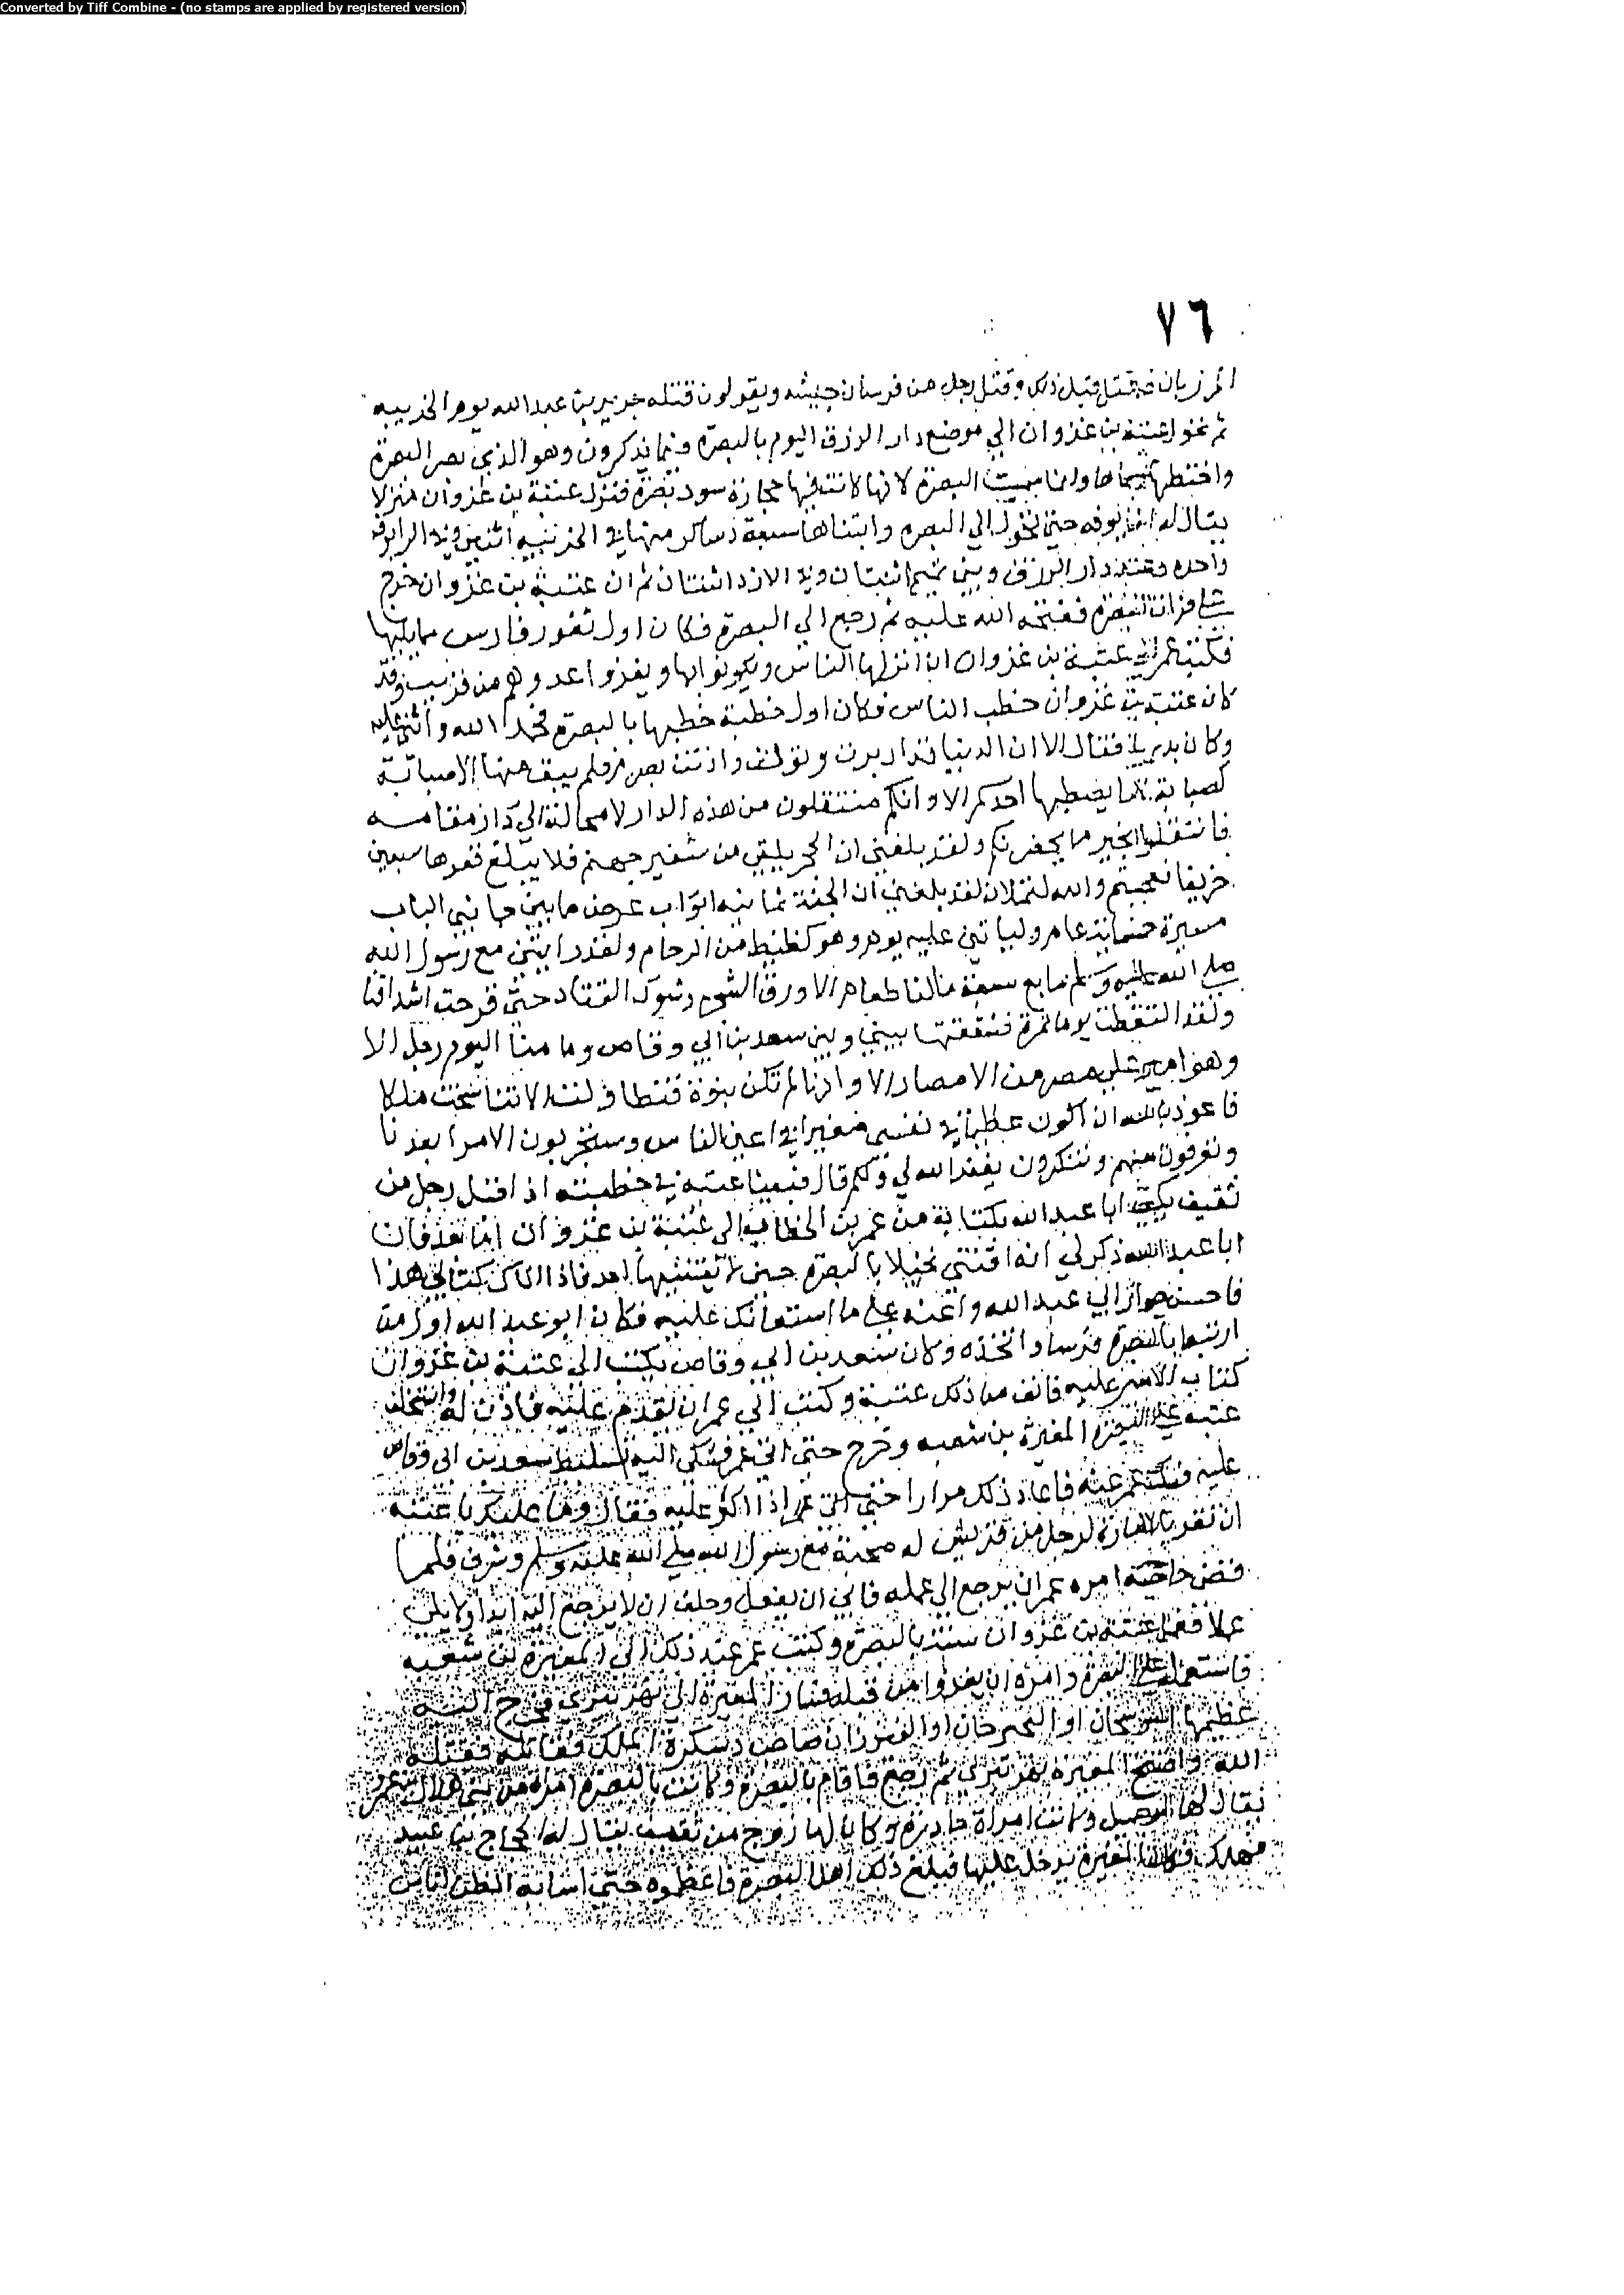 Converted by Tiff Combine - (no stamps are applied by registered version)
٧٦
المرزبان فقتل قبل ذلك وقتل رجل من فرسان جيشه ويقولون قتله جرير بن عبد الله يوم الخريبه
ثم غزوا عتبة بن غزوان الي موضع دار الرزق اليوم بالبصرة فيما يذكرون وهو الذي بصر البصرة
واختطها وانما سميت البصرة لانها كانت فيها حجارة سود بصرة فنزل عتبة بن غزوان منزلا
يقال له حتي تحول الي البصرة وابتناها سبعة دساكر منها في الخريبه اثنين وفي الزابوقه
واحده وعند دار الرزق وبني تميم اثنتان وفي الازد اثنتان ثم ان عتبة بن غزوان خرج
الي فرات البصرة ففتحه الله عليه ثم رجع الي البصرة فكان اول ثغور فارس مما يليها
فكتب عمر الي عتبة بن غزوان ان انزلها الناس ويكونوا بها ويغزوا عدوهم من قريب وقد
كان عتبة بن غزوان خطب الناس فكان اول خطبة خطبها بالبصرة فحمد الله واثني عليه
وكان بدريا فقال الا ان الدنيا قد ادبرت وتولت واذنت بصرم فلم يبق منها الا صبابة
كصبابة انما يصطبها احدكم الا وانكم منتقلون من هذه الدار لا محالة الي دار مقامه
فانتقلوا بخير ما بحضرتكم ولقد بلغني ان الحجر يلقي من شفير جهنم فلا يبلغ قعرها سبعين
خريفا فعجبتم والله لتملان لقد بلغني ان الجنة ثمانيه ابواب عرض ما بين جانبي الباب
مسيرة خمسماية عام ولياتين عليه يوم وهو كظيظ من الزحام ولقد رايتني مع رسول الله
صلي الله عليه وسلم سابع سبعة ما لنا طعام الا ورق الشجر وشوك القتاد حتي قرحت اشداقنا
ولقد التقطت يوما تمرة فشققتها بيني وبين سعد بن ابي وقاص وما منا اليوم رجل الا
وهو امير علي مصر من الامصار الا وانها لم تكن بنوة قط الا تناسخت ملكا
فاعوذ بالله ان اكون عظيما في نفسي صغيرا في اعين الناس وستجربون الامرا بعدنا
وتعرفون منهم وتنكرون يغفر الله لي ولكم قال فبينا عتبه في خطبته اذ اقبل رجل من
ثقيف يكني ابا عبد الله بكتابه من عمر بن الخطاب الي عتبة بن غزوان اما بعد فان
ابا عبد الله ذكر لي انه اقتني خيلا بالبصرة حين لا يقتنيها احد فاذا اتاك كتابي هذا
فاحسن جوار ابي عبد الله واعنه علي ما استعانك عليه فكان ابو عبد الله اول من
ارتبط بالبصرة فرسا واتخذه وكان سعد بن ابي وقاص يكتب الي عتبة بن غزوان
كتاب الامير عليه فانف من ذلك عتبة وكتب الي عمر ان يقدم عليه فاذن له واستخلف
عتبه علي البصرة المغيرة بن شعبه وخرج حتي اتي عمر فشكي اليه تسلط سعد بن ابي وقاص
عليه فسكت عمر عنه فاعاد ذلك مرارا حتي اذا اكثر عليه فقال وما عليك يا عتبه
ان تقر بالامارة لرجل من قريش له صحبة مع رسول الله صلي الله عليه وسلم وشرف فلما
قضي حاجته امره عمر ان يرجع الي عمله فابي ان يفعل وحلف ان لا يرجع اليه ابدا ولا يلي
عملا فعمل عتبة بن غزوان ستة بالبصرة وكتب عمر عند ذلك الي المغيرة بن شعبه
فاستعمله علي البصرة وامره ان يغزوا من قبله فسار المغيرة الي نهر تيري فخرج اليه
عظيمها النوشجان او النخيرجان او الفيرزان صاحب دسكرة الملك فقاتله فقتله
الله وافتتح المغيرة نهر تيري ثم رجع فاقام بالبصرة وكانت بالبصرة امراة من بني هلال بن عمرو
يقال لها ام جميل وكانت امراة جادرة وكان لها زوج من ثقيف يقال له الحجاج بن عبيد
فهلك فكان المغيرة يدخل عليها فبلغ ذلك اهل البصرة فاعظموه حتي اسا به الظن الناس